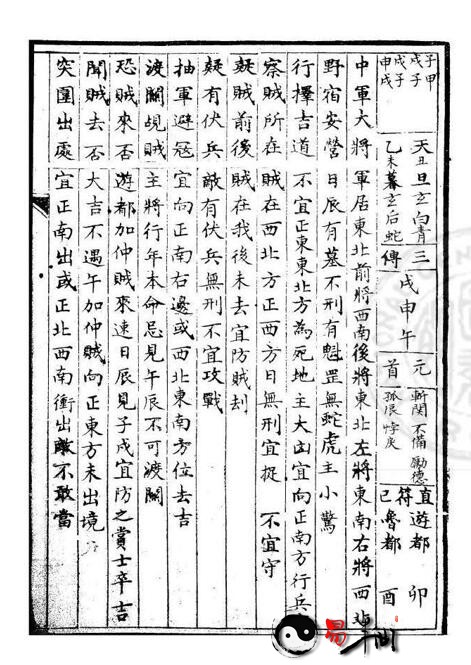 子甲
戊子
戊子
申戌
天丑旦玄白青
乙未暮玄后蛇
三傳
戌申午
元首
斬関不備勵德
孤辰悖戾
直符巳
遊都 卯
魯都 酉
中軍大將軍居東北前將西南後將東北左將東南右將西北
野宿安營 日辰有墓不刑有魁罡無蛇虎主小驚
行擇吉道 不宜正東東北方為死地主大凶宜向正南方行兵
察賊所在 賊在西北方正西方日無刑宜捉 不宜守
疑賊前後 賊在我後未去宜防賊刦
疑有伏兵 敵有伏兵無刑不宜攻戰
抽軍避寇 宜向正南右邊或西北東南方位去吉
渡關覘賊 主將行年本命忌見午辰不可渡關
恐賊來否 遊都加仲賊來速日辰見子戌宜防之賞士卒吉
聞賊去否 大吉不遇午加仲賊向正東方未出境
突圍出處 宜正南出或正北西南衝出敵不敢當
易